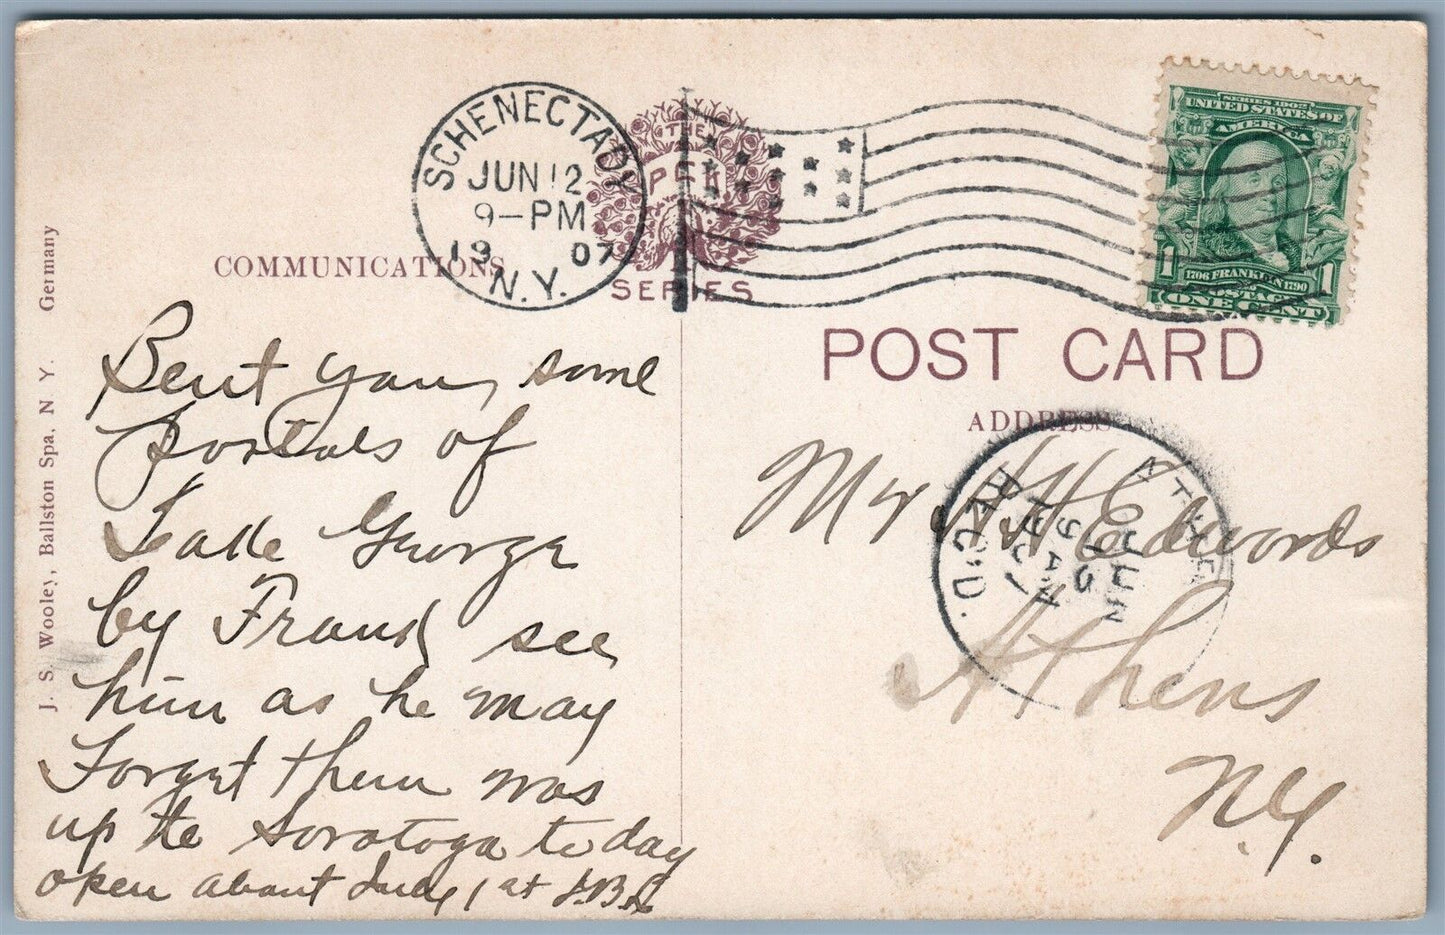 SCHENECTADY
JUN 12
9-PM
1907
N.Y.
THE
PCK
SERIES
SERIES 1902
UNITED STATES OF
AMERICA
1 1706 FRANKLIN 1790 1
POSTAGE
ONE CENT
COMMUNICATIONS
POST CARD
ADDRESS
J. S. Wooley, Ballston Spa, N Y. Germany
Sent you some
postals of
Lake George
by Frank see
him as he may
Forget them was
up to Soratoga to day
open about July 1 at
Mr Edwords
Athens
N.Y.
REC'D.
ATHE
JUN